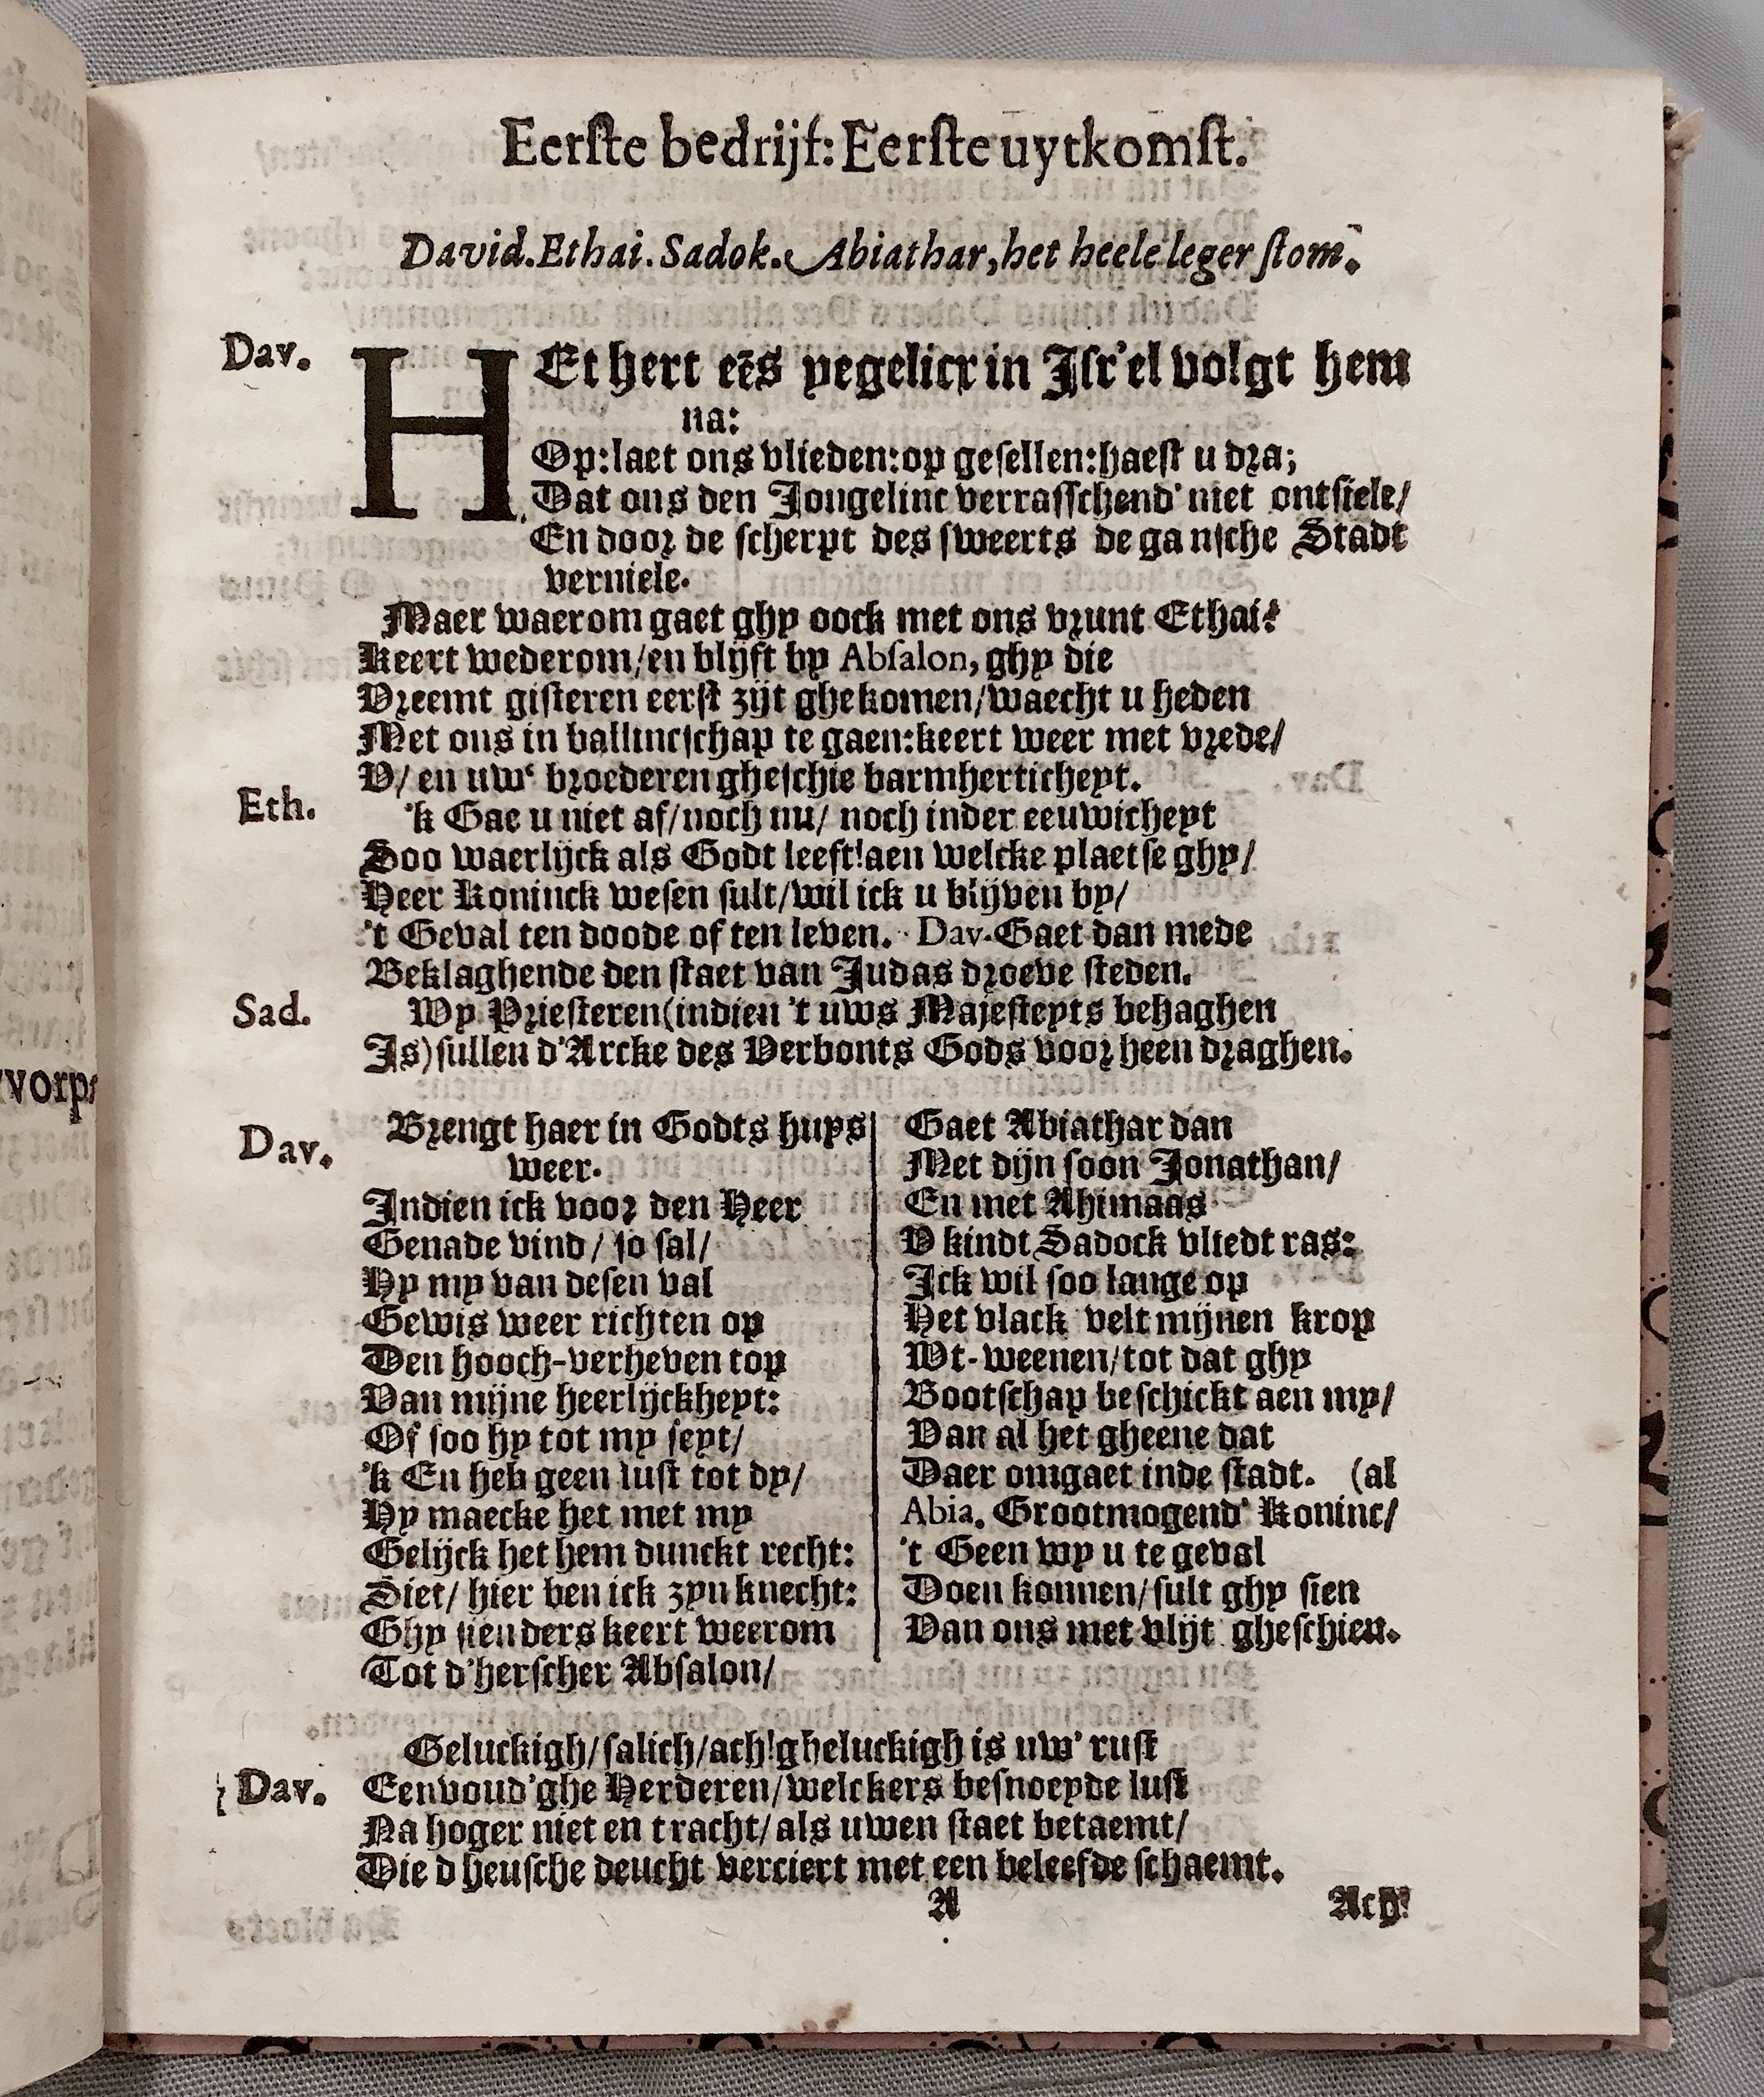 Eerſte bedrijf: Eerſte uytkomſt.
David. Ethai. Sadok. Abiathar, het heele leger ſtom.
Dav. HEt hert eẽs yegelicx in Iſr'el volgt hem
na:
Op: laet ons vlieden: op geſellen: haeſt u dra;
Dat ons den Jongelinc verraſſchend' niet ontſiele/
En door de ſcherpt des ſweerts de ganſche Stadt
verniele.
Maer waerom gaet ghy oock met ons vrunt Ethai?
Keert wederom/en blijft by Abſalon, ghy die
Vreemt giſteren eerſt zijt ghekomen/waecht u heden
Met ons in ballincſchap te gaen: keert weer met vrede/
V/ en uw' broederen gheſchie barmherticheyt.
Eth. 'k Gae u niet af/noch nu/ noch inder eeuwicheyt
Soo waerlijck als Godt leeft! aen welcke plaetſe ghy/
Heer Koninck weſen ſult/wil ick u blijven by/
't Geval ten doode of ten leven. Dav. Gaet dan mede
Beklaghende den ſtaet van Judas droeve ſteden.
Sad. Wy Prieſteren (indien 't uws Majeſteyts behaghen
Is) ſullen d'Arcke des Verbonts Gods voor heen draghen.
Dav. Brengt haer in Godts huys
weer.
Indien ick voor den Heer
Genade vind/ ſo ſal/
Hy my van deſen val
Gewis weer richten op
Den hooch-verheven top
Van mijne heerlijckheyt:
Of ſoo hy tot my ſeyt/
'k En heb geen luſt tot dy/
Hy maecke het met my
Gelijck het hem dunckt recht:
Siet/ hier ben ick zyn knecht:
Ghy ſienders keert weerom
Tot d'herſcher Abſalon/
Gaet Abiathar dan
Met dijn ſoon Jonathan/
En met Ahimaas
V kindt Sadock vliedt ras:
Ick wil ſoo lange op
Het vlack velt mijnen krop
Wt-weenen/tot dat ghy
Bootſchap beſchickt aen my/
Van al het gheene dat
Daer omgaet inde ſtadt. (al
Abia. Grootmogend' Koninc/
't Geen wy u te geval
Doen konnen/ſult ghy ſien
Van ons met vlijt gheſchien.
Geluckigh/ſalich/ach! gheluckigh is uw' ruſt
Dav. Eenvoud'ghe Herderen/welckers beſnoeyde luſt
Na hoger niet en tracht/ als uwen ſtaet betaemt/
Die d heuſche deucht verciert met een beleefde ſchaemt.
A Ach!
vorp